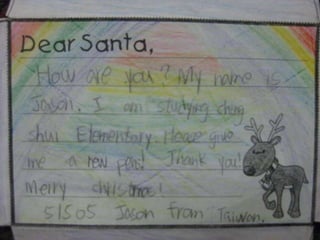 Dear Santa,
How are you? My name is
Jason. I am studying ching
shui Elementary. Please give
me a new pen! Thank you!
Merry christmas!
51505 Jason from Taiwan.